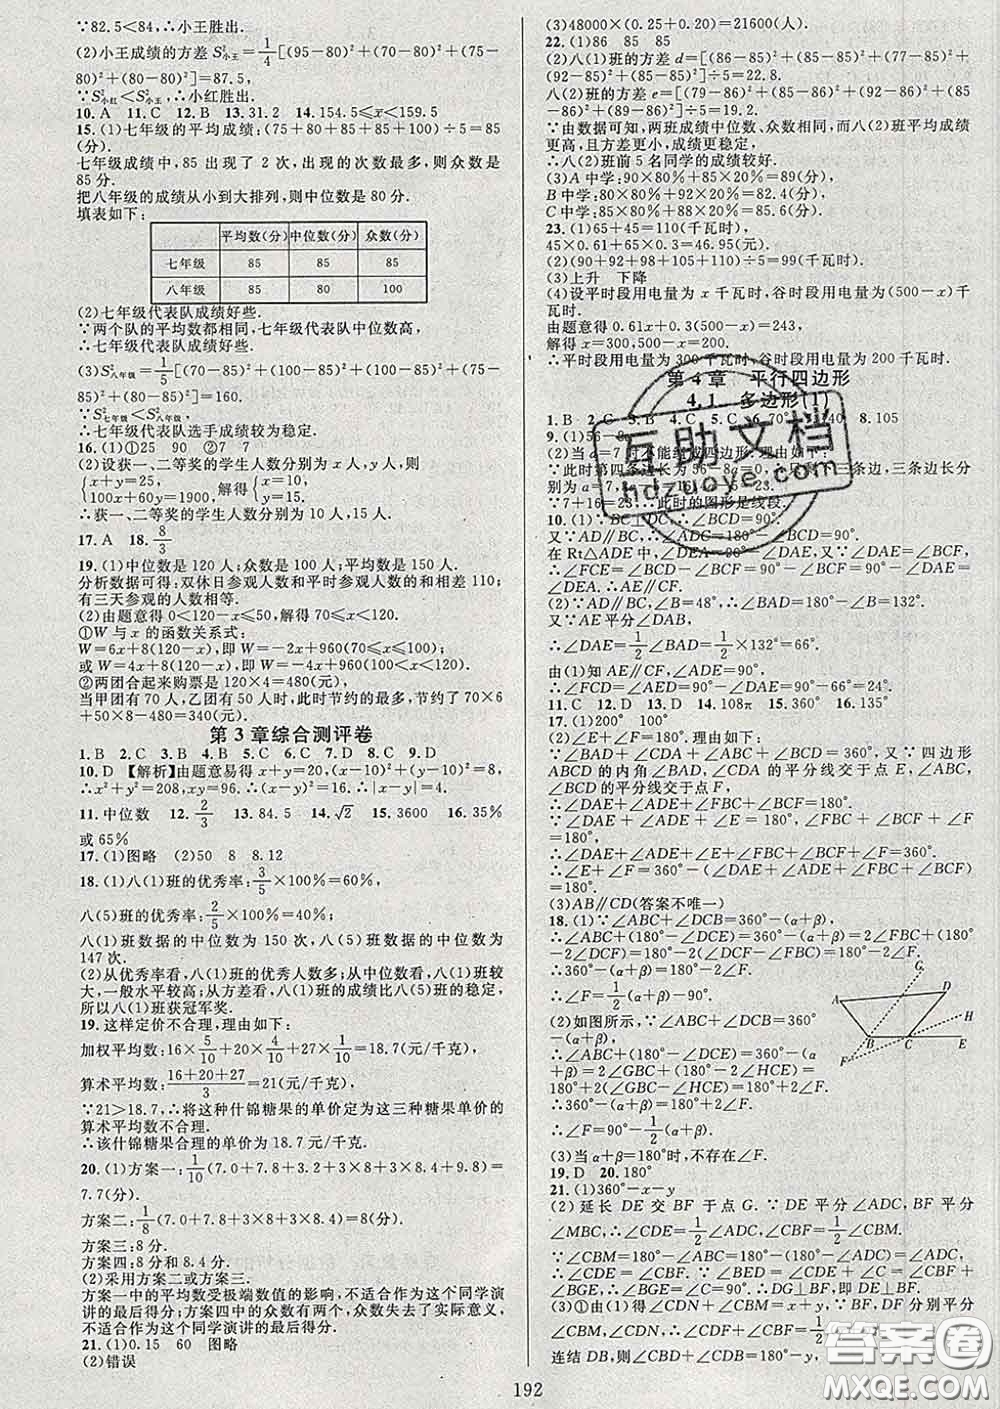 ∵82.5<84,∴小王胜出.
(2)小王成绩的方差S²小王=1/4[(95-80)²+(70-80)²+(75-
80)²+(80-80)²]=87.5,
∵S²小红<S²小王,∴小红胜出.
10. A 11. C 12. B 13. 31.2 14. 154.5≤x̄≤159.5
15. (1)七年级的平均成绩:(75+80+85+85+100)÷5=85
(分).
七年级成绩中,85出现了2次,出现的次数最多,则众数是
85分.
把八年级的成绩从小到大排列,则中位数是80分.
填表如下:
平均数(分) 中位数(分) 众数(分)
七年级 85 85 85
八年级 85 80 100
(2)七年级代表队成绩好些.
∵两个队的平均数都相同,七年级代表队中位数高,
∴七年级代表队成绩好些.
(3)S²八年级=1/5[(70-85)²+(100-85)²+(100-85)²+(75-
85)²+(80-85)²]=160.
∵S²七年级<S²八年级,
∴七年级代表队选手成绩较为稳定.
16. (1)①25 90 ②7 7
(2)设获一、二等奖的学生人数分别为x人,y人,
{x+y=25, 100x+60y=1900. 解得{x=10, y=15.
∴获一、二等奖的学生人数分别为10人,15人.
17. A 18. 8/3
19. (1)中位数是120人;众数是100人;平均数是150人.
分析数据可得:双休日参观人数和平时参观人数的和相差110;
有三天参观的人数相等.
(2)由题意得0<120-x≤50,解得70≤x<120.
①W与x的函数关系式:
W=6x+8(120-x),即W=-2x+960(70≤x≤100);
或W=4x+8(120-x),即W=-4x+960(100<x<120).
②两团合起来购票是120×4=480(元),
当甲团有70人,乙团有50人时,此时节约的最多,节约了70×6
+50×8-480=340(元).
第3章综合测评卷
1. B 2. C 3. B 4. B 5. C 6. C 7. D 8. C 9. D
10. D 【解析】由题意易得x+y=20,(x-10)²+(y-10)²=8,
∴x²+y²=208,xy=96.∴(x-y)²=16.∴|x-y|=4.
11. 中位数 12. 2/3 13. 84.5 14. √2 15. 3600 16. 35%
或65%
17. (1)图略 (2)50 8 8.12
18. (1)八(1)班的优秀率:3/5×100%=60%,
八(5)班的优秀率:2/5×100%=40%.
八(1)班数据的中位数为150次,八(5)班数据的中位数为
147次.
(2)从优秀率看,八(1)班的优秀人数多;从中位数看,八(1)班较
大,一般水平较高;八(1)班的成绩比八(5)班的稳定,
所以八(1)班获冠军奖.
19. 这样定价不合理,理由如下:
加权平均数:16×5/10+20×4/10+27×1/10=18.7(元/千克).
算术平均数:(16+20+27)/3=21(元/千克).
∵21>18.7,∴将这种什锦糖果的单价定为这三种糖果单价的
算术平均数不合理.
∴该什锦糖果合理的单价为18.7元/千克.
20. (1)方案一:1/10(7.0+7.8+3.2+8+8.4+8.4+9.8+
7.7(分).
方案二:1/8(7.0+7.8+
方案三:8分.
方案四:8分和8.4分.
(2)采用方案二或方案三.
方案一中的平均数受极端数值的影响,不适合作为这个同学演
讲的最后得分;方案四中的众数有两个,众数失去了实际意义,
不适合作为这个同学演讲的最后得分.
21. (1)0.15 60 图略
(2)错误
(3)48000×(0.25+0.20)=21600(人).
22. (1)86 85 85
(2)八(1)班的方差d=[(86-85)²+(85-85)²+(77-85)²
+(92-85)²+(85-85)²]÷5=22.8.
八(2)班的方差e=[(79-86)²+(85-86)²+(92-86)²+(85
-86)²+(89-86)²]÷5=19.2.
∵由数据可知,两班成绩中位数、众数相同,而八(2)班平均成绩
更高,且方差更小,成绩更稳定,
∴八(2)班前5名同学的成绩较好.
(3)A中学:90×80%+85×20%=89(分),
B中学:80×80%+92×20%=82.4(分),
C中学:85×80%+88×20%=85.6(分).
23. (1)65+45=110(千瓦时),
45×0.61+65×0.3=46.95(元).
(2)(90+92+98+105+110)÷5=99(千瓦时)
(3)上升 下降
(4)设平时段用电量为x千瓦时,谷时段用电量为(500-x)千
瓦时.
由题意得0.61x+0.3(500-x)=243,
解得x=300,500-x=200.
∴平时段用电量为300千瓦时,谷时段用电量为200千瓦时.
第4章 平行四边形
4.1 多边形(1)
1. B 2. C 3. B 4. C 5. C 6. 70° 7. 140 8. 105
9. (1)56-8a
(2)当a=7时不能组成四边形.理由如下:
∵此时第四条边长为56-8a=0,只剩下三条边,三条边长分
别为a=7,
∵7+16=23,∴此时的图形是线段.
10. (1)∵BC⊥DC,∴∠BCD=90°.
又∵AD∥BC,∴∠ADC=180°-∠BCD=90°.
在Rt△ADE中,∠DEA=90°-∠DAE,又∵∠DAE=∠BCF,
∴∠FCE=∠BCD-∠BCF=90°-∠BCF=90°-∠DAE=
∠DEA,∴AE∥CF.
(2)∵AD∥BC,∠B=48°,∴∠BAD=180°-∠B=132°.
又∵AE平分∠DAB,
∴∠DAE=1/2∠DAB=1/2×132°=66°.
由(1)知AE∥CF,∠ADE=90°.
∴∠FCD=∠AEC=∠ADE+∠DAE=90°+66°=156°.
11. C 12. D 13. D 14. 108π 15. 36 16. 135°
17. (1)200° 100°
(2)∠E+∠F=180°,理由如下:
∵∠BAD+∠CDA+∠ABC+∠BCD=360°,又∵四边形
ABCD的内角∠BAD,∠CDA的平分线交于点E,∠ABC,
∠BCD的平分线交于点F,
∴∠DAE+∠ADE+∠FBC+∠BCF=180°.
∵∠DAE+∠ADE+∠E=180°,∠FBC+∠BCF+∠F
=180°,
∴∠DAE+∠ADE+∠E+∠FBC+∠BCF+∠F=360°.
∴∠E+∠F=360°-(∠DAE+∠ADE+∠FBC+∠BCF)
=180°.
(3)AB∥CD(答案不唯一)
18. (1)∵∠ABC+∠DCB=360°-(α+β),
∴∠ABC+(180°-∠DCE)=360°-(α+β)=2∠FBC+
∴360°-(α+β)=180°+2∠F.
∴∠F=1/2(α+β)-90°.
(2)如图所示,∵∠ABC+∠DCB=360°-
(α+β),
∴∠ABC+(180°-∠DCE)=360°-(α+
β)=2∠GBC+(180°-2∠HCE)=180°+
2(∠GBC-∠HCE)=180°+2∠F.
∴360°-(α+β)=180°+2∠F.
∴∠F=90°-1/2(α+β).
(3)当α+β=180°时,不存在∠F.
G A D H B C E F
19. D 20. 180°
21. (1)360°-x-y
(2)延长DE交BF于点G.∵DE平分∠ADC,BF平分
∠MBC,∴∠CDE=1/2∠ADC,∠CBF=1/2∠CBM.
∵∠CBM=180°-∠ABC=180°-(180°-∠ADC)=∠ADC,
∴∠CDE=∠CBF.∵∠BEG=∠CED,∠BGE+∠CBF+
∠BGE=∠C=90°.∴DG⊥BF,即DE⊥BF.
(3)①由(1)得∠CDN+∠CBM=x+y,∵BF,DF分别平分
∠CBM,∠CDN,∴∠CDF+∠CBF=1/2
连结DB,则∠CDB+∠CBD=180°-y,
192
互助文档
hdzuoye.com
答案圈
MXQE.COM